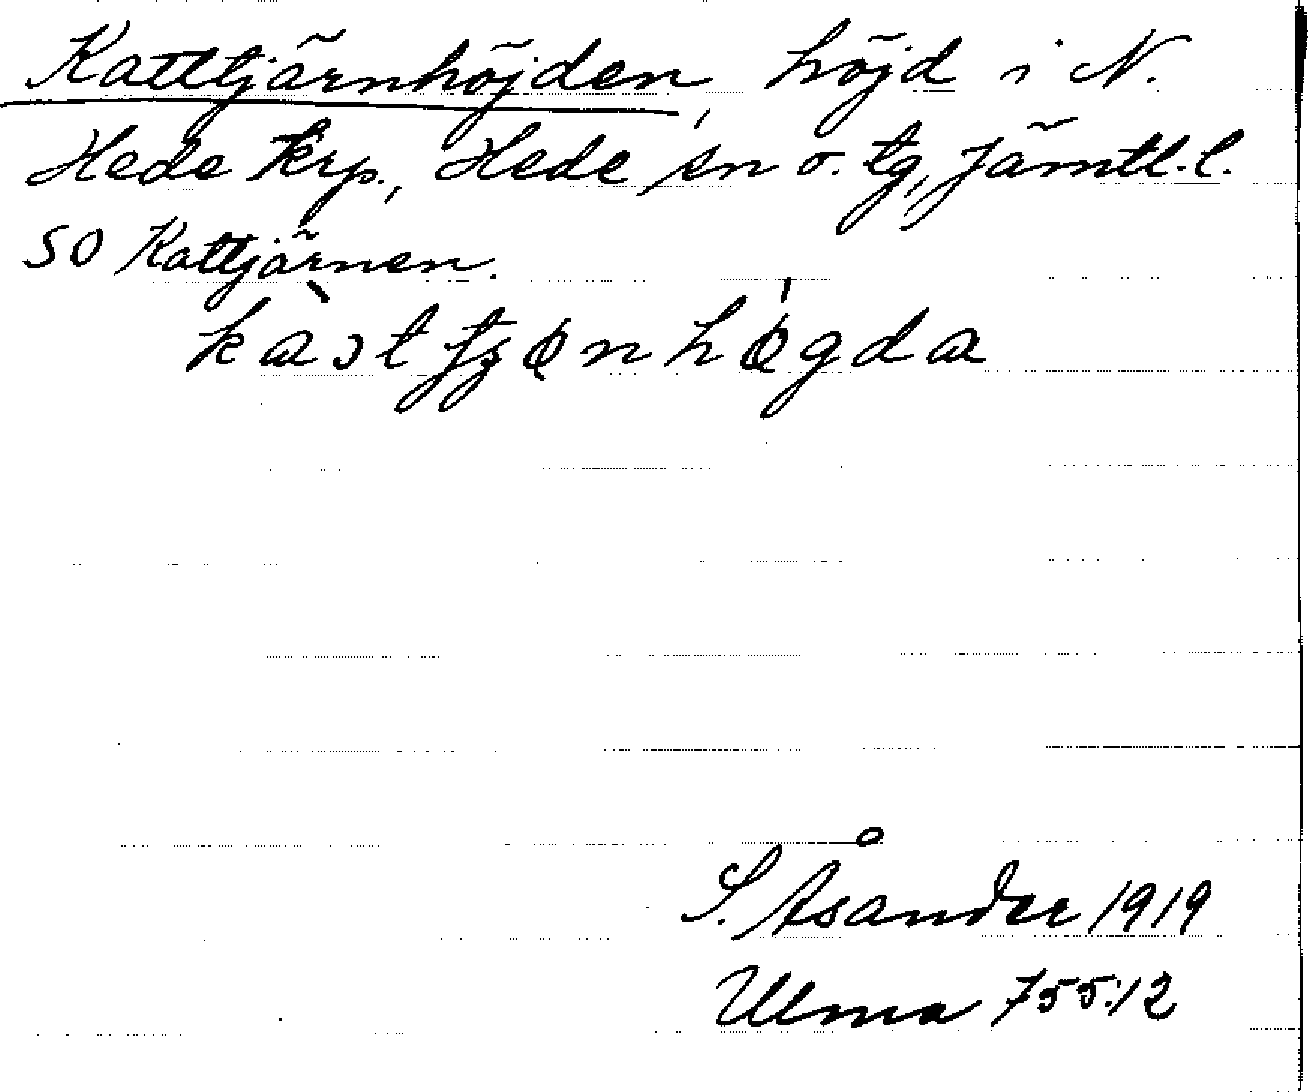 Kattjärnhöjden, höjd i N.
Hede krp., Hede sn o. tg, Jämtl. l.
SO Kattjärnen.
S. Åsander 1919
Ulma 755:12